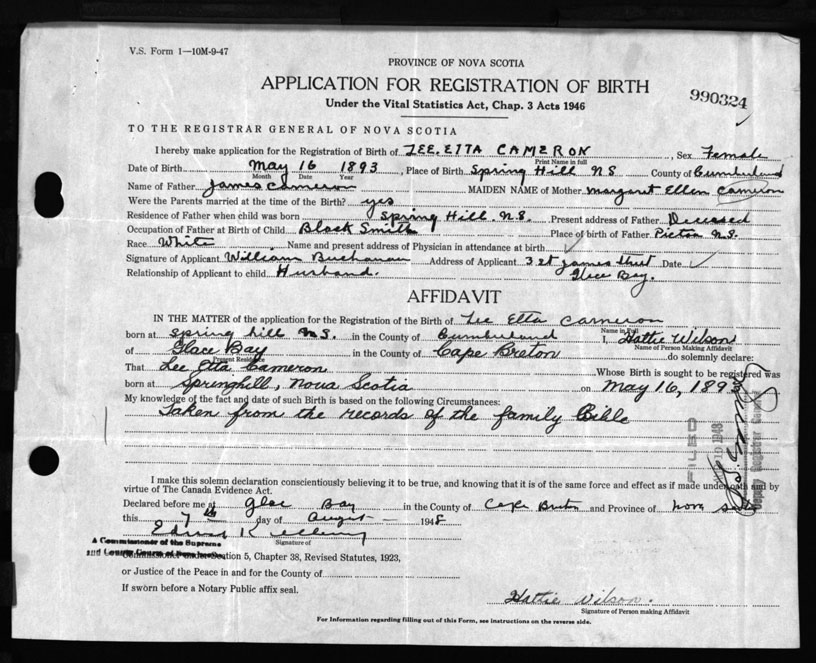 V.S. Form 1—10M-9-47
PROVINCE OF NOVA SCOTIA
APPLICATION FOR REGISTRATION OF BIRTH
990324
Under the Vital Statistics Act, Chap. 3 Acts 1946
TO THE REGISTRAR GENERAL OF NOVA SCOTIA
I hereby make application for the Registration of Birth of LEE.ETTA CAMERON, Sex Female
Print Name in full
Date of Birth May 16 1893, Place of Birth Spring Hill N S County of Cumberland
Month Date Year
Name of Father James Cameron MAIDEN NAME of Mother Margaret Ellen Cameron
Were the Parents married at the time of the Birth? yes
Residence of Father when child was born Spring Hill. N.S. Present address of Father Deceased
Occupation of Father at Birth of Child Black Smith Place of birth of Father Pictou N.S.
Race White Name and present address of Physician in attendance at birth
Signature of Applicant William Buchanan Address of Applicant 3 St James Date
Relationship of Applicant to child Husband. Glace Bay.
AFFIDAVIT
IN THE MATTER of the application for the Registration of the Birth of Lee Etta Cameron
Name in Full
born at Spring hill N.S. in the County of Cumberland I, Hattie Wilson
Name of Person Making Affidavit
of Glace Bay in the County of Cape Breton do solemnly declare:
Present Residence
That Lee Etta Cameron Whose Birth is sought to be registered was
born at Springhill, Nova Scotia on May 16, 189
My knowledge of the fact and date of such Birth is based on the following Circumstances:
Taken from the records of the family Bible
FILED
1948
I make this solemn declaration conscientiously believing it to be true, and knowing that it is of the same force and effect as if made under oath and by
virtue of The Canada Evidence Act.
Declared before me at Glace Bay in the County of Cape Breton and Province of Nova Scotia
this 7th day of August 1948
Signature of
A Commissioner of the Supreme
and County Court of
Section 5, Chapter 38, Revised Statutes, 1923,
or Justice of the Peace in and for the County of
If sworn before a Notary Public affix seal.
Hattie Wilson.
Signature of Person making Affidavit
For Information regarding filling out of this Form, see instructions on the reverse side.